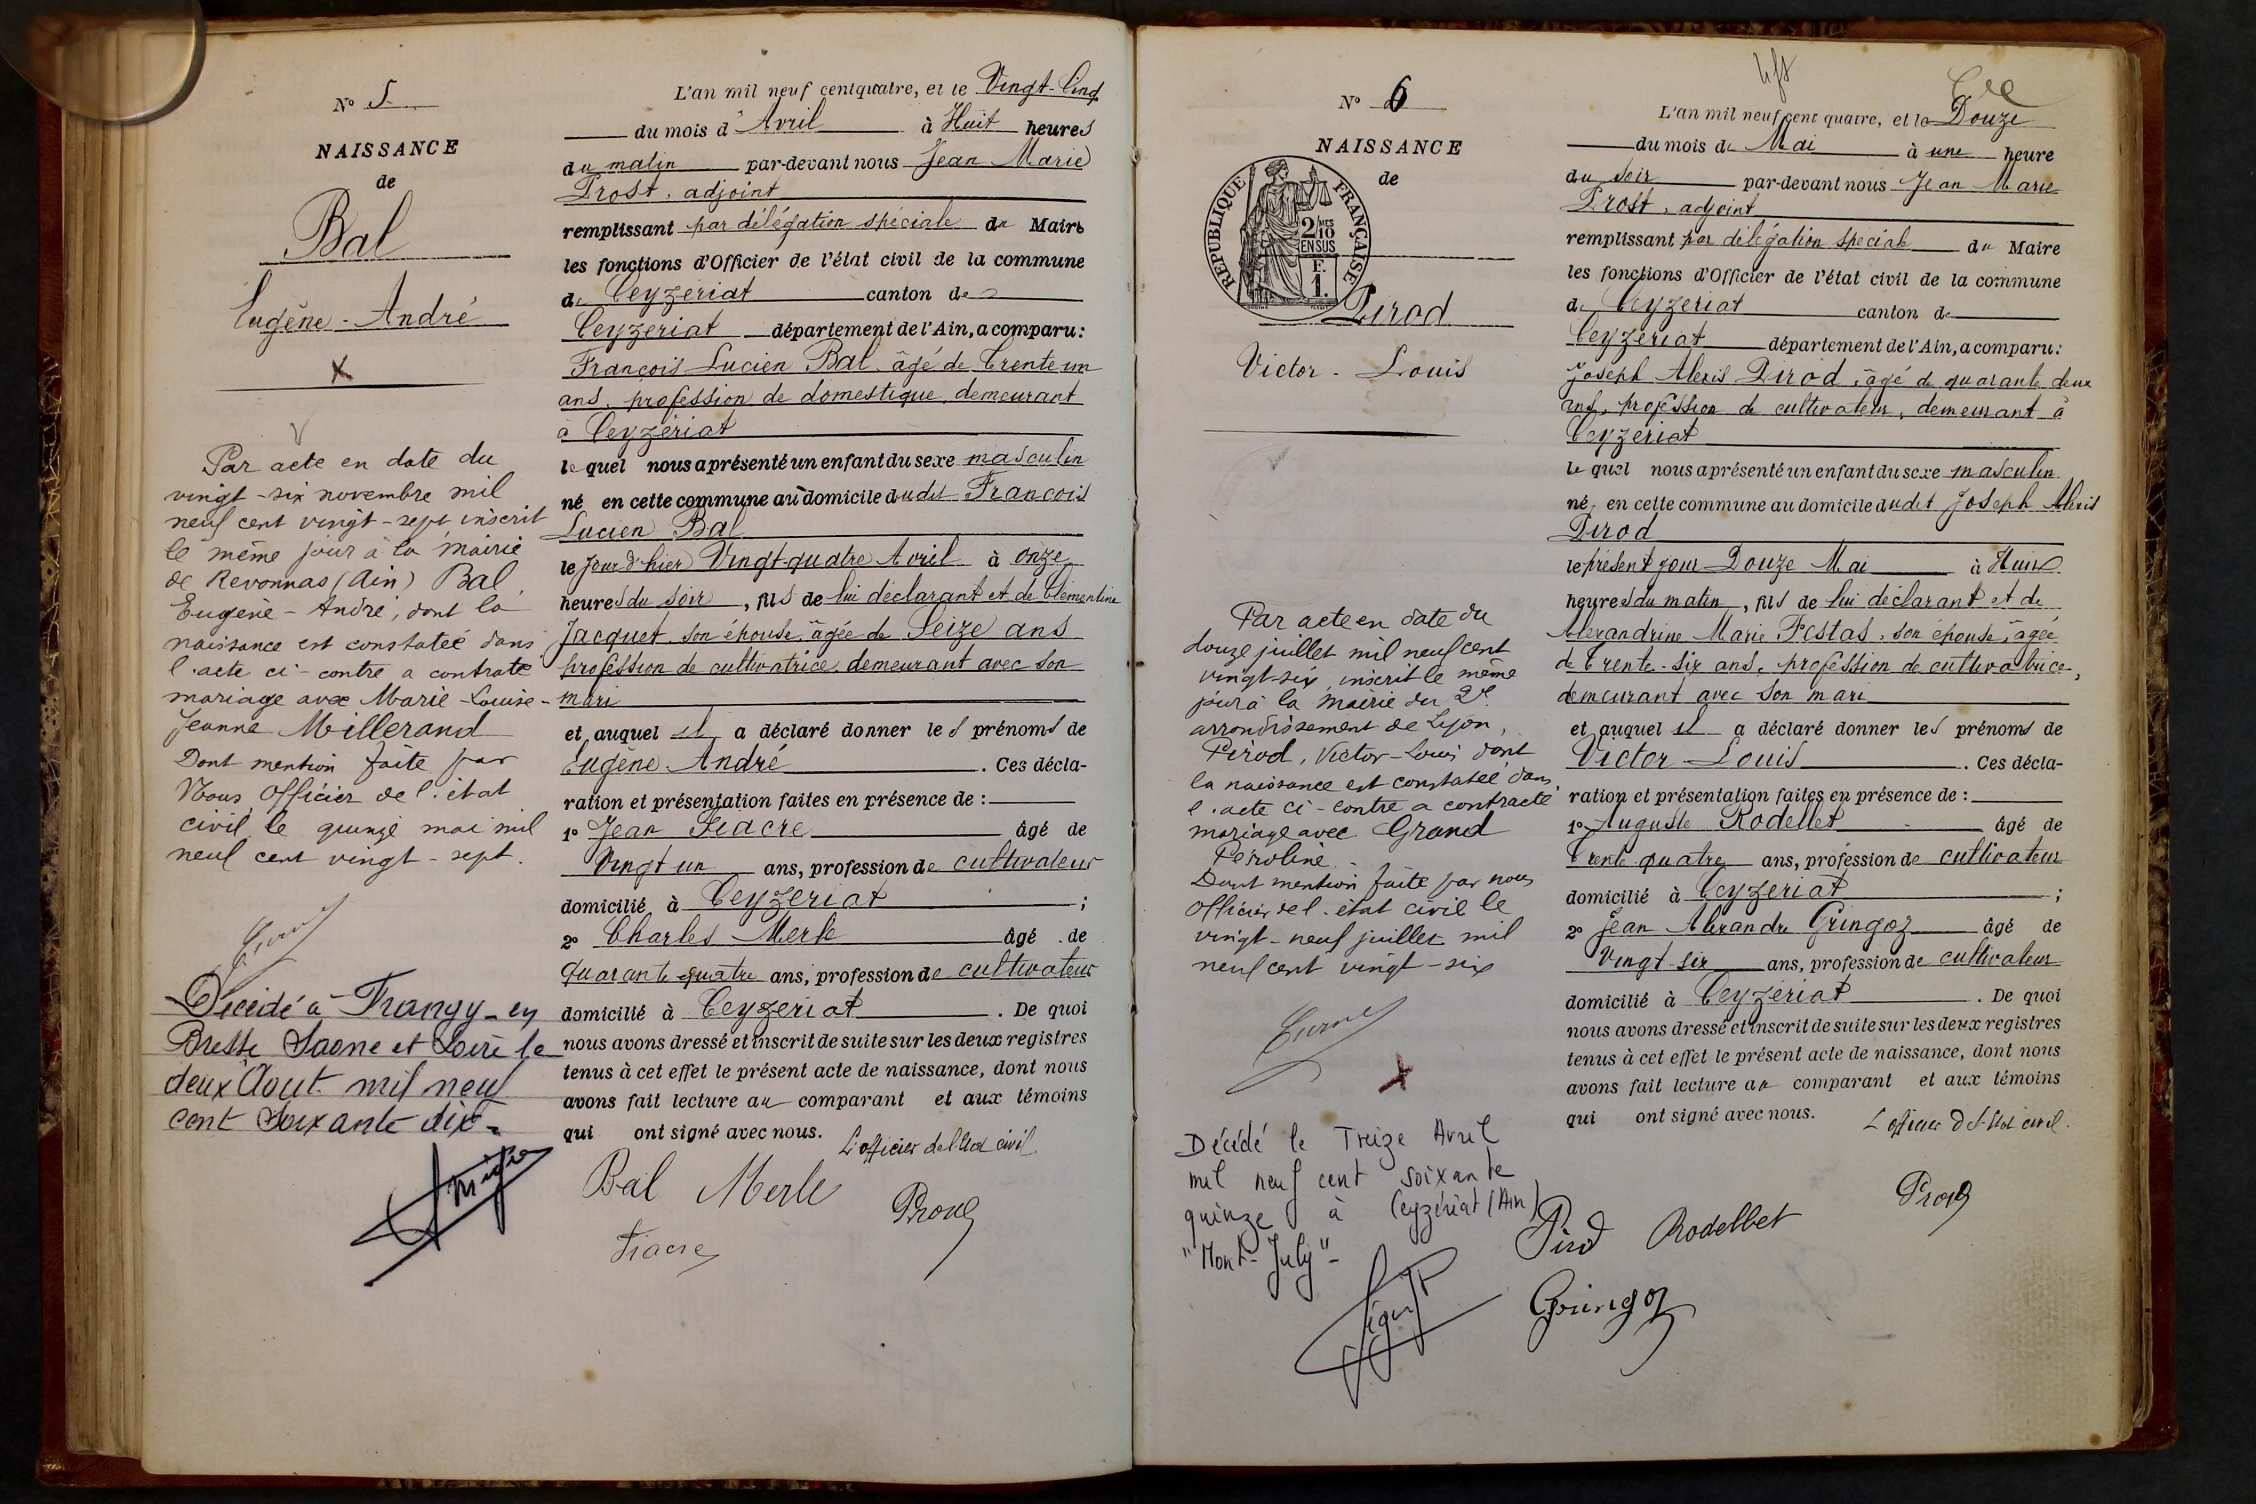 N° 5
NAISSANCE
de
Bal
Eugène - André
Par acte en date du
vingt-six novembre mil
neuf cent vingt-sept inscrit
le même jour à la mairie
de Revonnas (Ain) Bal,
Eugène-André, dont la
naissance est constatée dans
l'acte ci-contre a contraté
mariage avec Marie-Louise-
Jeanne Millerand
Dont mention faite par
Nous Officier de l'état
civil le quinze mai mil
neuf cent vingt-sept.
Décédé à Frangy-en
Bresse Saone et Loire le
deux Aout mil neuf
cent soixante dix-
L'an mil neuf cent quatre, et le Vingt-Cinq
du mois d'Avril à Huit heures
du matin par-devant nous Jean Marie
Prost, adjoint
remplissant par délégation spéciale du Maire
les fonctions d'Officier de l'état civil de la commune
de Ceyzeriat canton de
Ceyzeriat département de l'Ain, a comparu:
François Lucien Bal âgé de trente un
ans, profession de domestique demeurant
à Ceyzériat
lequel nous a présenté un enfant du sexe masculin
né en cette commune au domicile dudit François
Lucien Bal
le jour d'hier Vingt-quatre Avril à onze
heures du soir, fils de lui déclarant et de Clémentine
Jacquet son épouse, âgée de Seize ans
profession de cultivatrice demeurant avec son
mari
et auquel il a déclaré donner les prénoms de
Eugène André. Ces décla-
ration et présentation faites en présence de:
1° Jean Fiacre âgé de
Vingt un ans, profession de cultivateur
domicilié à Ceyzeriat;
2° Charles Merle âgé de
quarante quatre ans, profession de cultivateur
domicilié à Ceyzeriat. De quoi
nous avons dressé et inscrit de suite sur les deux registres
tenus à cet effet le présent acte de naissance, dont nous
avons fait lecture au comparant et aux témoins
qui ont signé avec nous. L'officier de l'état civil
Bal Merle Prost
Fiacre
N° 6
NAISSANCE
de
RÉPUBLIQUE FRANÇAISE
2/10
EN SUS
F.
1.
Pirod
Victor - Louis
Par acte en date du
douze juillet mil neuf cent
vingt-six, inscrit le même
jour à la mairie du 2e
arrondissement de Lyon,
Pirod, Victor-Louis dont
la naissance est constatée dans
l'acte ci-contre a contracté
mariage avec Grand
Péroline.
Dont mention faite par nous
Officier de l'état civil le
vingt-neuf juillet mil
neuf cent vingt-six
Décédé le Treize Avril
mil neuf cent soixante
quinze à Ceyzériat (Ain)
"Mont-July"-
L'an mil neuf cent quatre, et le Douze
du mois de Mai à une heure
du soir par-devant nous Jean Marie
Prost, adjoint
remplissant par délégation speciale du Maire
les fonctions d'Officier de l'état civil de la commune
de Ceyzeriat canton de
Ceyzeriat département de l'Ain, a comparu:
Joseph Alexis Pirod, âgé de quarante deux
ans, profession de cultivateur, demeurant à
Ceyzeriat
lequel nous a présenté un enfant du sexe masculin
né en cette commune au domicile dudit Joseph Alexis
Pirod
le présent jour Douze Mai à Huit
heures du matin, fils de lui déclarant et de
Alexandrine Marie Festas, son épouse, âgée
de trente-six ans, profession de cultivatrice,
demeurant avec son mari
et auquel il a déclaré donner les prénoms de
Victor-Louis. Ces décla-
ration et présentation faites en présence de:
1° Auguste Rodellet âgé de
trente quatre ans, profession de cultivateur
domicilié à Ceyzeriat;
2° Jean Alexandre Gringoz âgé de
Vingt six ans, profession de cultivateur
domicilié à Ceyzériat. De quoi
nous avons dressé et inscrit de suite sur les deux registres
tenus à cet effet le présent acte de naissance, dont nous
avons fait lecture au comparant et aux témoins
qui ont signé avec nous. L'officier de l'état civil.
Pirod Rodellet Prost
Gringoz